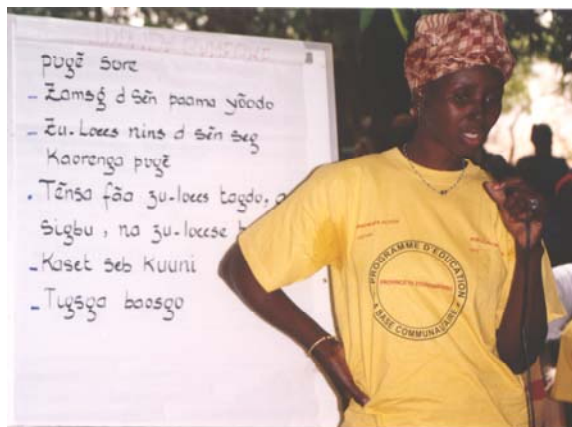 pʋgẽ sore
- Zãmsg d sẽn paama yõodo
- Zu-loees nins d sẽn seg
Kaorenga pʋgẽ
- Tẽnsa fãa zu-loees tagdo,
sigbu, na zu-loeese
- Kaset seb kʋʋni
- Tʋgsga baosgo
PROGRAMME D'EDUCATION
A BASE COMMUNAUTAIRE